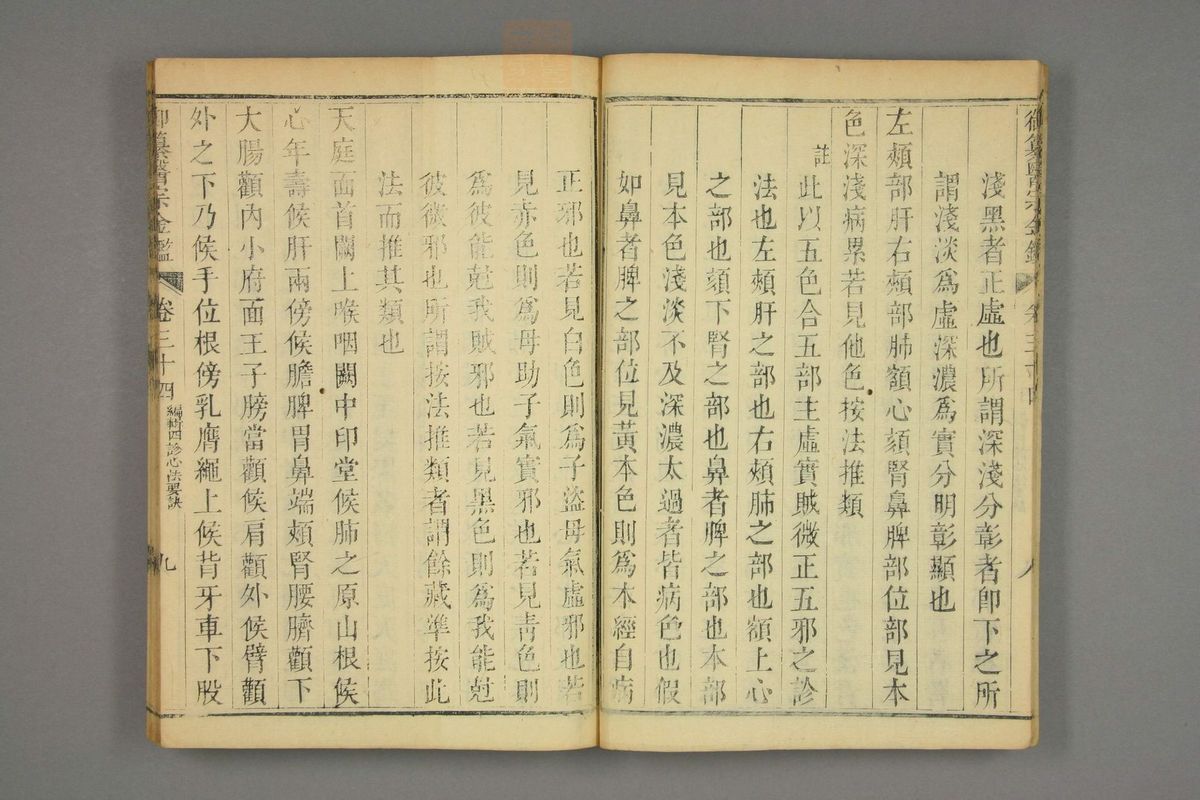 御纂醫宗金鑑
卷三十四
八
淺黑者正虛也所謂深淺分彰者卽下之所
謂淺淡爲虛深濃爲實分明彰顯也
左頰部肝右頰部肺額心頦腎鼻脾部位部見本
色深淺病累若見他色按法推類
註
此以五色合五部主虛實賊微正五邪之診
法也左頰肝之部也右頰肺之部也額上心
之部也頦下腎之部也鼻者脾之部也本部
見本色淺淡不及深濃太過者皆病色也假
如鼻者脾之部位見黃本色則爲本經自病
正邪也若見白色則爲子盜母氣虛邪也若
見赤色則爲母助子氣實邪也若見靑色則
爲彼能尅我賊邪也若見黑色則爲我能尅
彼微邪也所謂按法推類者謂餘藏準按此
法而推其類也
天庭面首闕上喉咽闕中印堂候肺之原山根候
心年壽候肝兩傍候膽脾胃鼻端頰腎腰臍顴下
大腸顴內小府面王子膀當顴候肩顴外候臂顴
外之下乃候手位根傍乳膺繩上候背牙車下股
御纂醫宗金鑑
卷三十四
編輯四診心法要訣
九